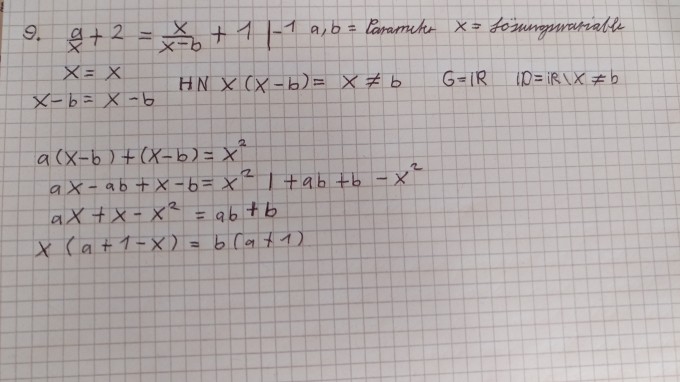 9. a/x + 2 = x/(x-b) + 1 |-1 a, b = Parameter x = Lösungsvariable
x = x HN x (x-b) = x ≠ b G=ℝ ID=ℝ\x ≠ b
x-b = x-b
a(x-b) + (x-b) = x²
ax - ab + x - b = x² | + ab + b - x²
ax + x - x² = ab + b
x (a+1-x) = b(a+1)